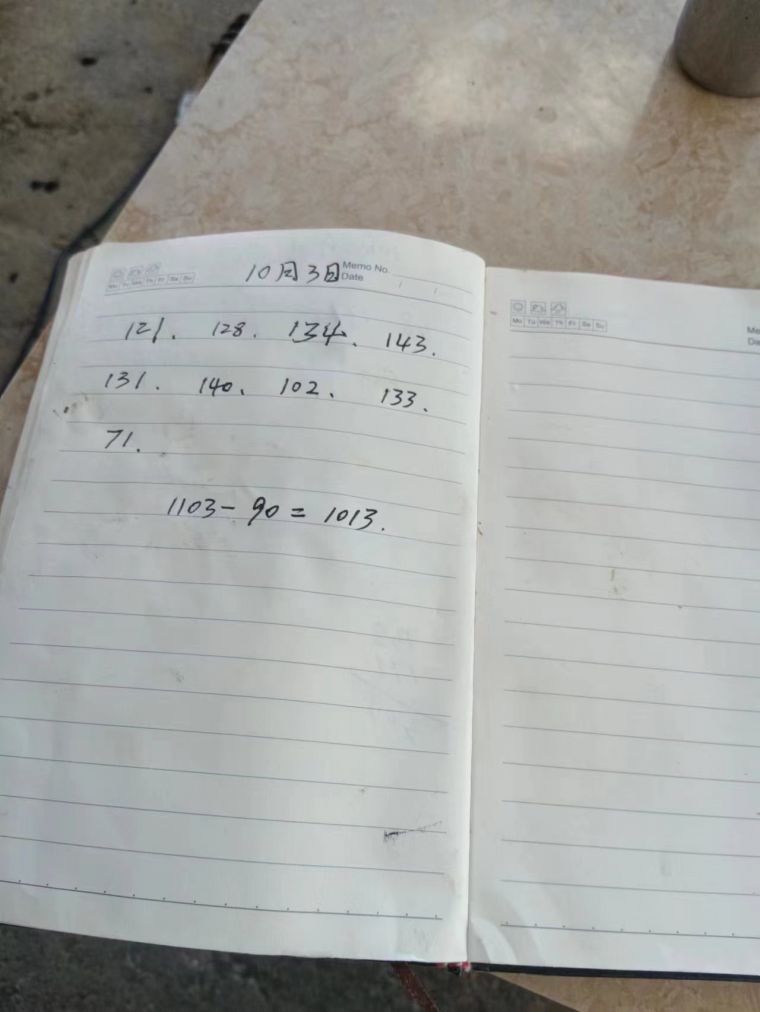 10月3日 Memo No.
Mo Tu We Th Fr Sa Su Date
121. 128. 134. 143.
131. 140. 102. 133.
71.
1103-90=1013.
Mo Tu We Th Fr Sa Su